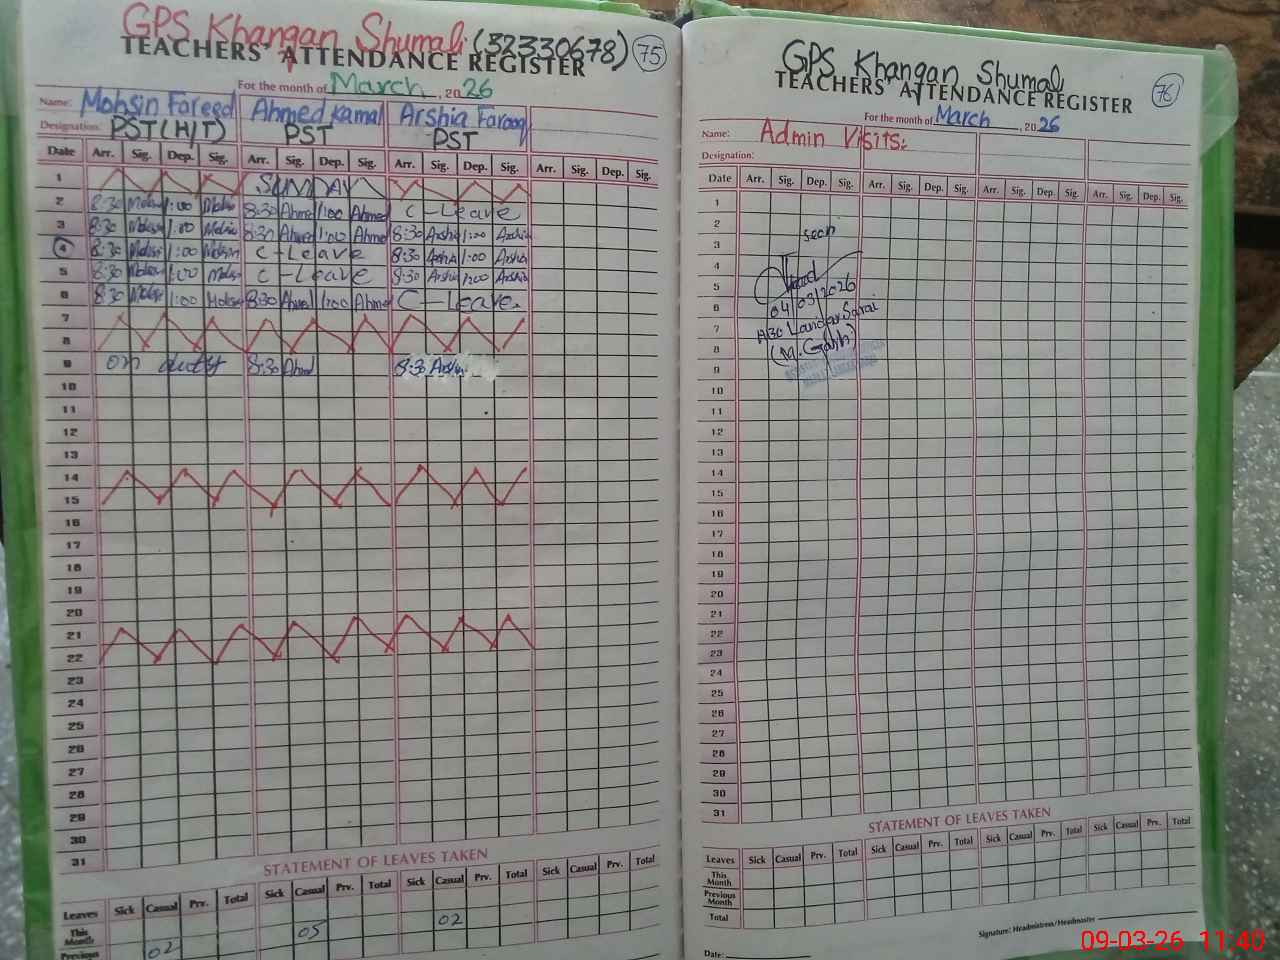 GPS Khangan Shumali (32330678) 75
TEACHERS' ATTENDANCE REGISTER
For the month of March, 2026
Name: Mohsin Fareed Ahmed Kamal Arshia Farooq
Designation: PST(H/T) PST PST
Date Arr. Sig. Dep. Sig. Arr. Sig. Dep. Sig. Arr. Sig. Dep. Sig. Arr. Sig. Dep. Sig.
1 SUNDAY
2 8:30 Mohsin 1:00 Mohsin 8:30 Ahmed 1:00 Ahmed C-Leave
3 8:30 Mohsin 1:00 Mohsin 8:30 Ahmed 1:00 Ahmed 8:30 Arshia 1:00 Arshia
4 8:30 Mohsin 1:00 Mohsin C-Leave 8:30 Arshia 1:00 Arshia
5 8:30 Mohsin 1:00 Mohsin C-Leave 8:30 Arshia 1:00 Arshia
6 8:30 Mohsin 1:00 Mohsin 8:30 Ahmed 1:00 Ahmed C-Leave.
7
8
9 on duty 8:30 Ahmd 8:30 Arshia
10
11
12
13
14
15
16
17
18
19
20
21
22
23
24
25
26
27
28
29
30
31
STATEMENT OF LEAVES TAKEN
Leaves Sick Casual Prv. Total Sick Casual Prv. Total Sick Casual Prv. Total Sick Casual Prv. Total
This Month 05 02
Previous 02
GPS Khangan Shumali
76
TEACHERS' ATTENDANCE REGISTER
For the month of March, 2026
Name: Admin Visits:
Designation:
Date Arr. Sig. Dep. Sig. Arr. Sig. Dep. Sig. Arr. Sig. Dep. Sig. Arr. Sig. Dep. Sig.
1
2
3 seen
4
5
6 04/03/2026
7
8 (M. Garh)
9
10
11
12
13
14
15
16
17
18
19
20
21
22
23
24
25
26
27
28
29
30
31
STATEMENT OF LEAVES TAKEN
Leaves Sick Casual Prv. Total Sick Casual Prv. Total Sick Casual Prv. Total Sick Casual Prv. Total
This Month
Previous Month
Total
Signature: Headmistress/Headmaster
Date:
09-03-26 11:40